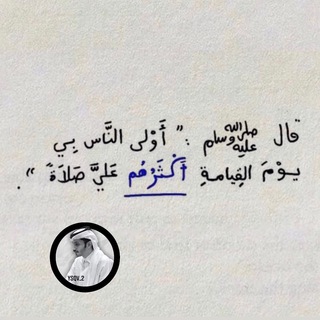 قال ﷺ : " أَوْلى النَّاس بِي
يَوْمَ القِيامةِ أَكْثَرُهُم عَليَّ صَلَاةً " .
YSQV.2